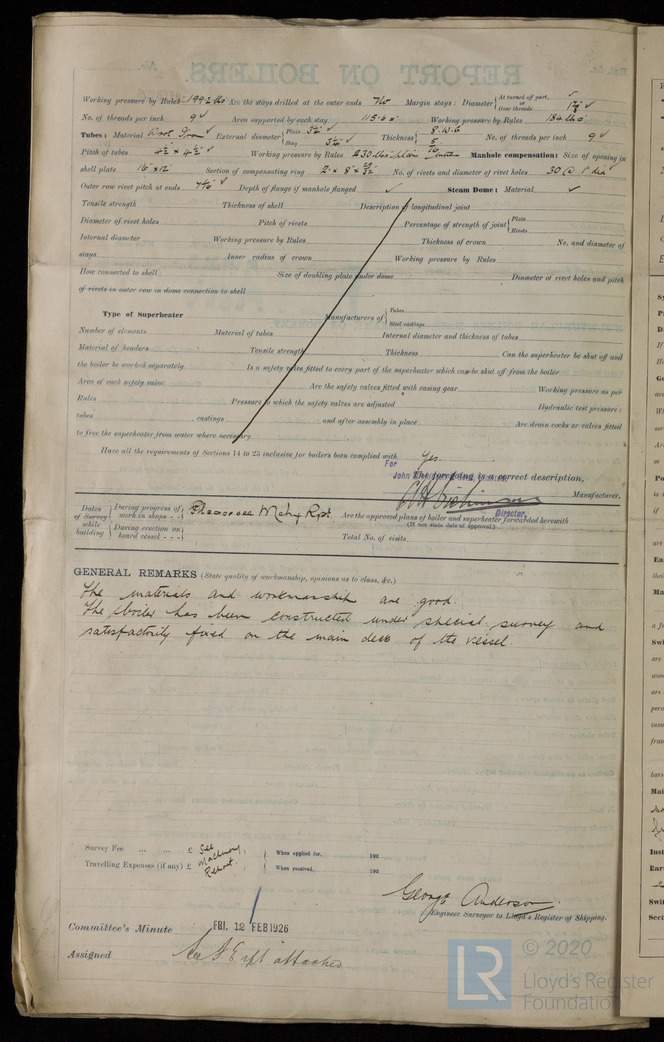 REPORT ON BOILERS.
Working pressure by Rules 199.2 lbs Are the stays drilled at the outer ends No Margin stays: Diameter { At turned off part, ✓ or Over threads 1 7/8" ✓
No. of threads per inch 9 ✓ Area supported by each stay 115.6 Working pressure by Rules 184 lbs ✓
Tubes: Material Wrot Iron ✓ External diameter { Plain 3 1/4" ✓ Stay 3 1/4" ✓ Thickness { 8.W.G 5/16 No. of threads per inch 9 ✓
Pitch of tubes 4 1/2" x 4 1/2" ✓ Working pressure by Rules 230 lbs plain Manhole compensation: Size of opening in
shell plate 16" x 12" Section of compensating ring 2 x 8" x 29/32" No. of rivets and diameter of rivet holes 30 @ 1" dia
Outer row rivet pitch at ends Depth of flange if manhole flanged ✓ Steam Dome: Material ✓
Tensile strength Thickness of shell Description of longitudinal joint
Diameter of rivet holes Pitch of rivets Percentage of strength of joint { Plate Rivets
Internal diameter Working pressure by Rules Thickness of crown No. and diameter of
stays Inner radius of crown Working pressure by Rules
How connected to shell Size of doubling plate under dome Diameter of rivet holes and pitch
of rivets in outer row in dome connection to shell
Type of Superheater Manufacturers of { Tubes Steel castings
Number of elements Material of tubes Internal diameter and thickness of tubes
Material of headers Tensile strength Thickness Can the superheater be shut off and
the boiler be worked separately Is a safety valve fitted to every part of the superheater which can be shut off from the boiler
Area of each safety valve Are the safety valves fitted with easing gear Working pressure as per
Rules Pressure to which the safety valves are adjusted Hydraulic test pressure:
tubes castings and after assembly in place Are drain cocks or valves fitted
to free the superheater from water where necessary
Have all the requirements of Sections 14 to 23 inclusive for boilers been complied with Yes.
For
The foregoing is a correct description,
Manufacturer.
Director.
Dates of Survey while building { During progress of work in shops - - During erection on board vessel - - - } Please see Mchy Rpt. Are the approved plans of boiler and superheater forwarded herewith
(If not state date of approval.)
Total No. of visits
GENERAL REMARKS (State quality of workmanship, opinions as to class, &c.)
The materials and workmanship are good.
The boiler has been constructed under special survey and
satisfactorily fixed on the main deck of the vessel.
Survey Fee ... ... £ See Machinery Report. When applied for, 192
Travelling Expenses (if any) £ When received, 192
George Anderson.
Engineer Surveyor to Lloyd's Register of Shipping.
Committee's Minute FRI. 12 FEB 1926
Assigned See F.E. rpt attached
LR © 2020
Lloyd's Register
Foundation